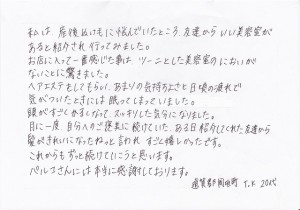 私は、産後ぬけ毛に悩んでいたところ、友達からいい美容室が
あると紹介され行ってみました。
お店に入って一番感じた事は ツーンとした美容室のにおいが
ないことに驚きました。
ヘアエステをしてもらい、あまりの気持ちよさと日頃の疲れで
気がついたときには眠ってしまっていました。
頭がすごくかるくなって、スッキリした気分になりました。
月に一度、自分へのご褒美に続けていた、ある日紹介してくれた友達から
髪がきれいになったねっと言われ すごく嬉しかったです。
これからもずっと続けていこうと思います。
パルスさんには本当に感謝しております。
遠賀郡岡垣町 T.K 20代